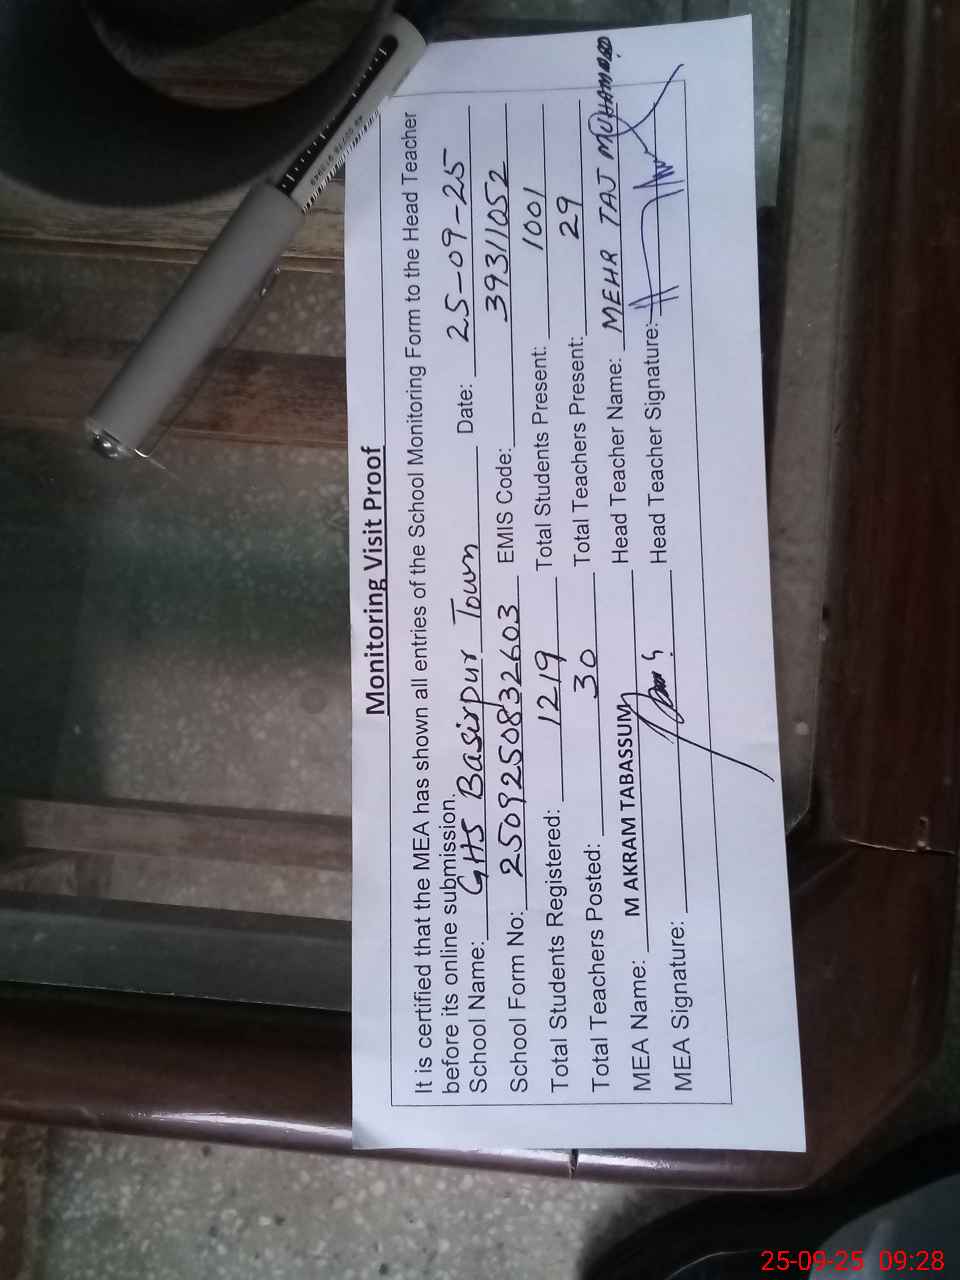 Monitoring Visit Proof
It is certified that the MEA has shown all entries of the School Monitoring Form to the Head Teacher
before its online submission.
School Name: GHS Basirpur Town Date: 25-09-25
School Form No: 2509250832603 EMIS Code: 39311052
Total Students Registered: 1219 Total Students Present: 1001
Total Teachers Posted: 30 Total Teachers Present: 29
MEA Name: M AKRAM TABASSUM Head Teacher Name: MEHR TAJ MUHAMMAD
MEA Signature: Head Teacher Signature:
25-09-25 09:28